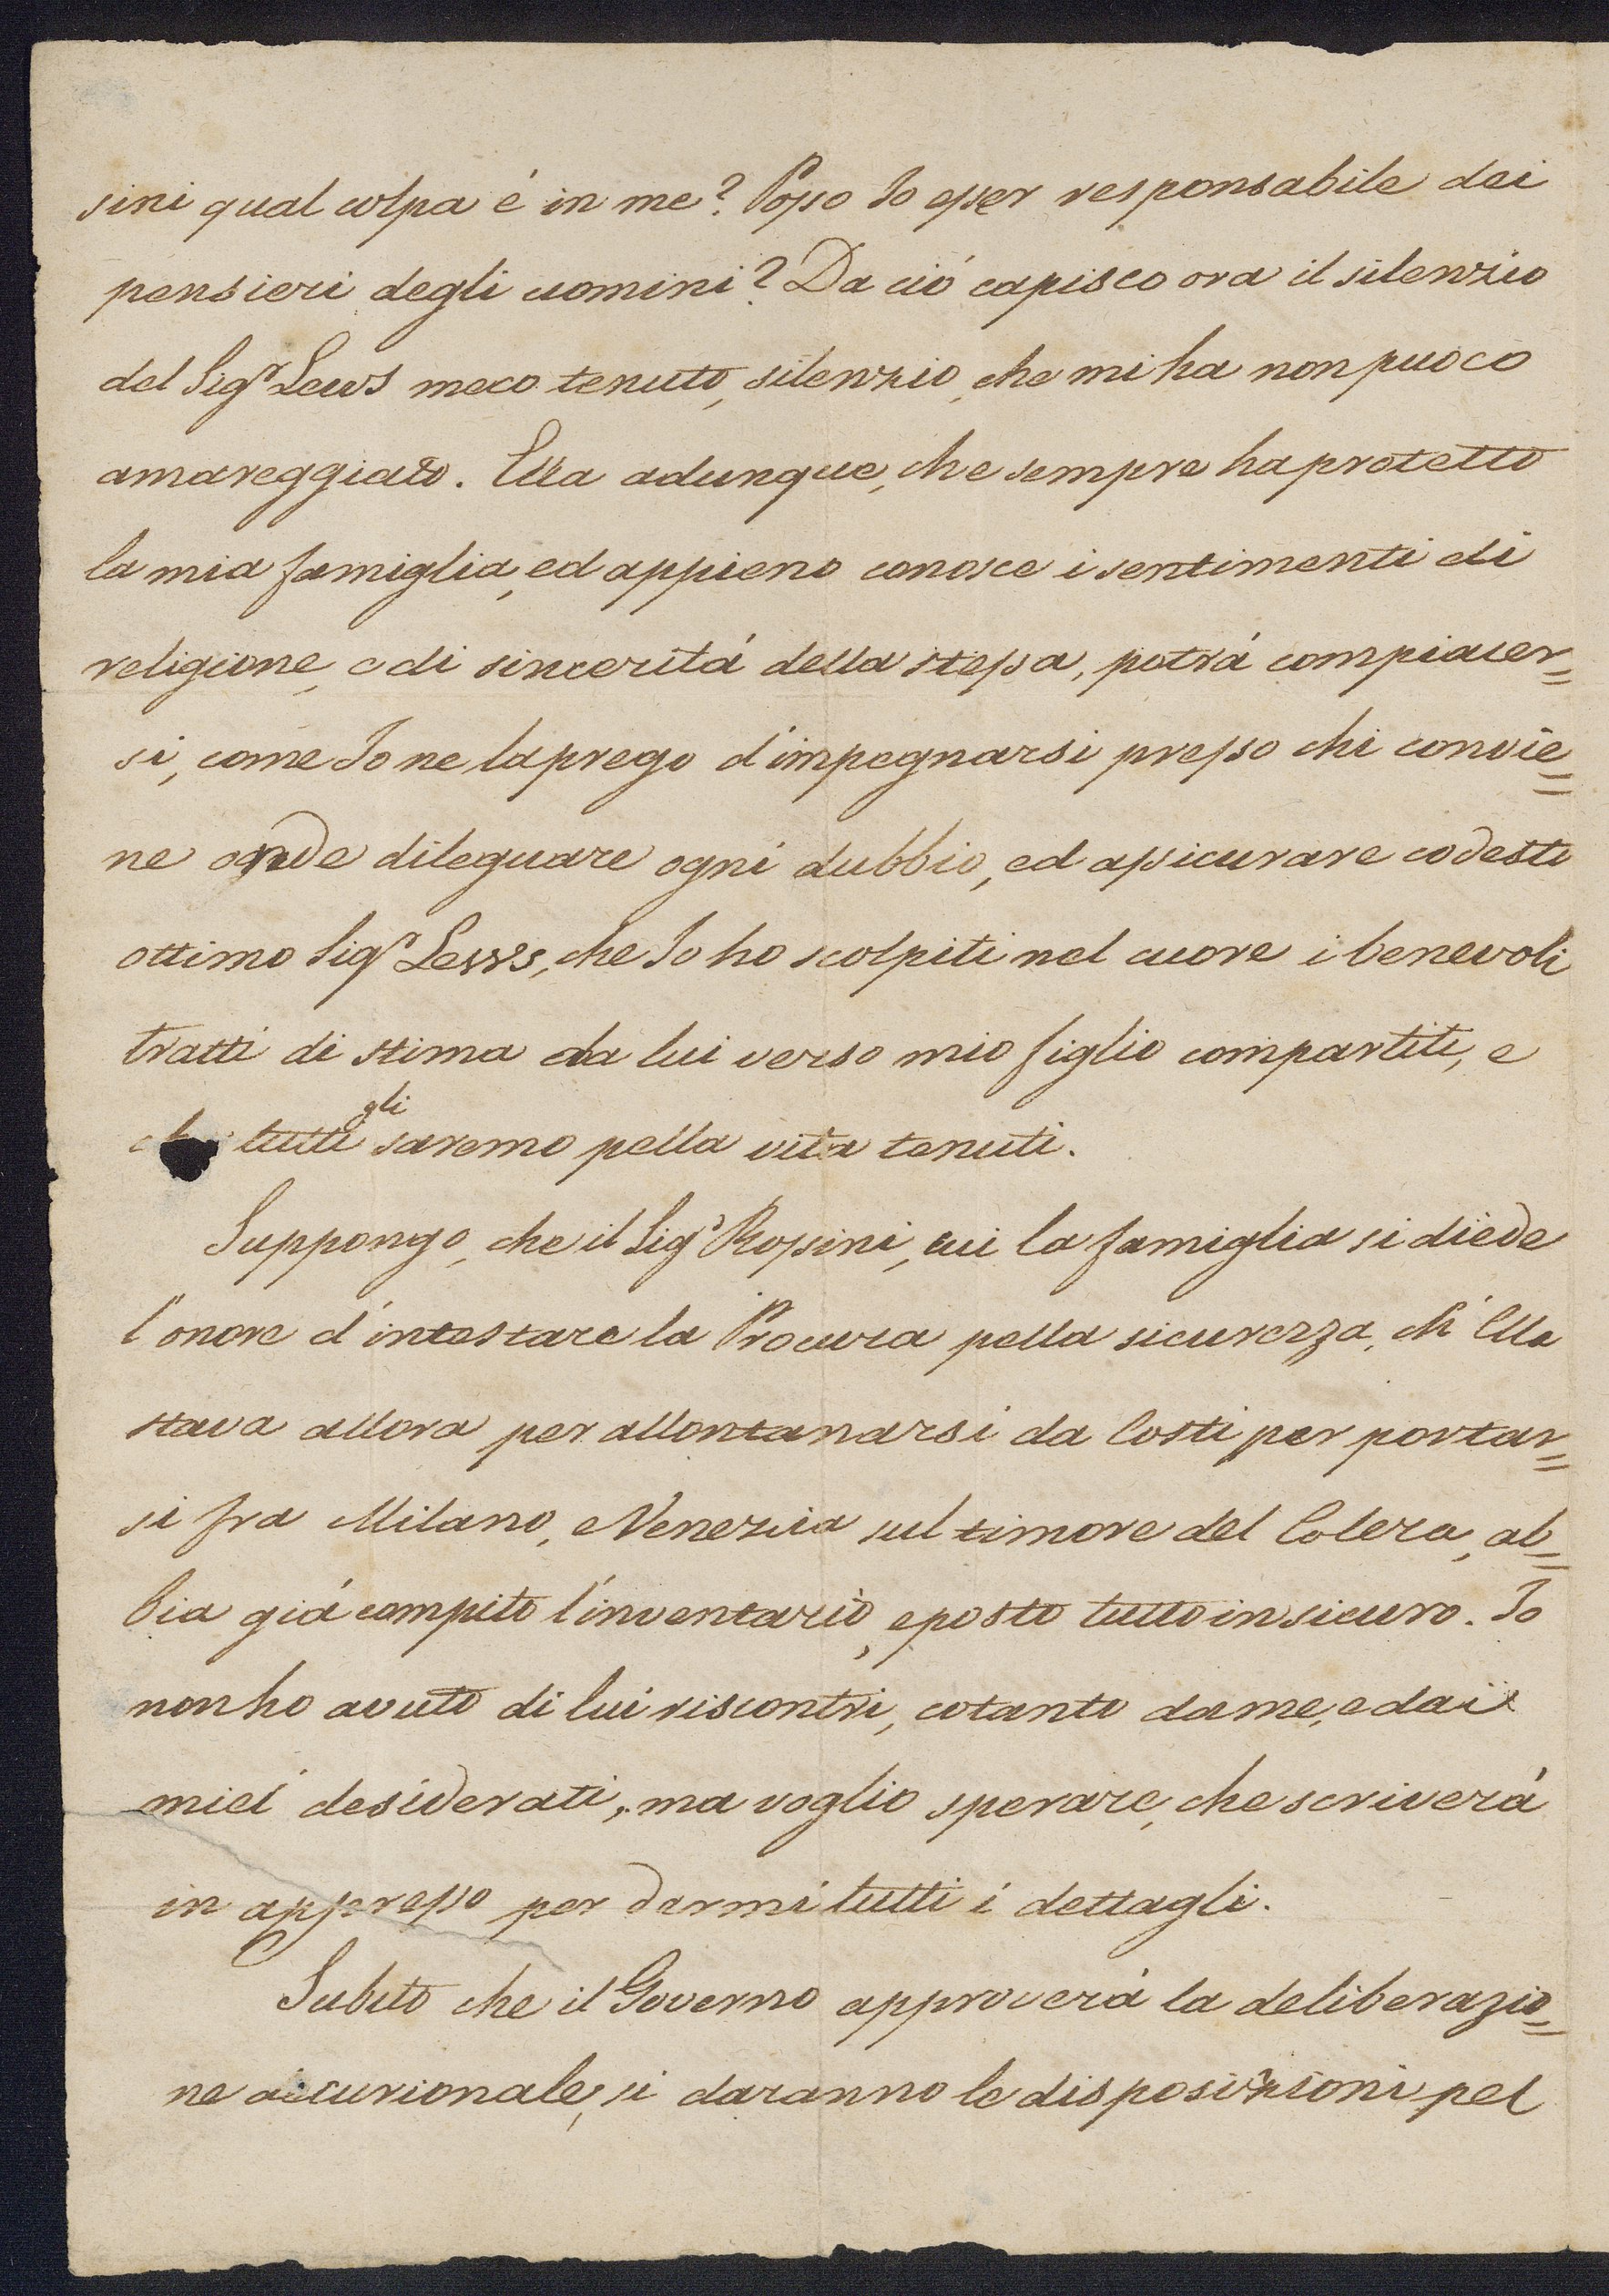 sini qual colpa é in me? Posso Io esser responsabile dei
pensieri degli uomini? Da ció capisco ora il silenzio
del Sigr Lewis meco tenuto, silenzio, che mi ha non puoco
amareggiato. Ella adunque, che sempre ha protetto
la mia famiglia, ed appieno conosce i sentimenti di
religione, e di sinceritá della stessa, potrá compiacer=
si, come Io ne la prego d'impegnarsi presso chi convie=
ne onde dileguare ogni dubbio, ed assicurare codesto
ottimo Sigr Lewis, che Io ho scolpiti nel cuore i benevoli
tratti di stima da lui verso mio figlio compartiti, e
tutti gli saremo pella vita tenuti.
Suppongo, che il Sigr Rossini, cui la famiglia si diede
l'onore d'intestare la Procura pella sicurezza, ch'Ella
stava allora per allontanarsi da Costi per portar=
si fra Milano, e Venezia sul timore del Colera, ab=
bia giá compito l'inventario, e posto tutto in sicuro. Io
non ho avuto di lui riscontri, cotanto da me, e dai
miei desiderati, ma voglio sperare, che scriverá
in appresso per darmi tutti i dettagli.
Subito che il Governo approverá la deliberazio=
ne decurionale, si daranno le disposizioni pel